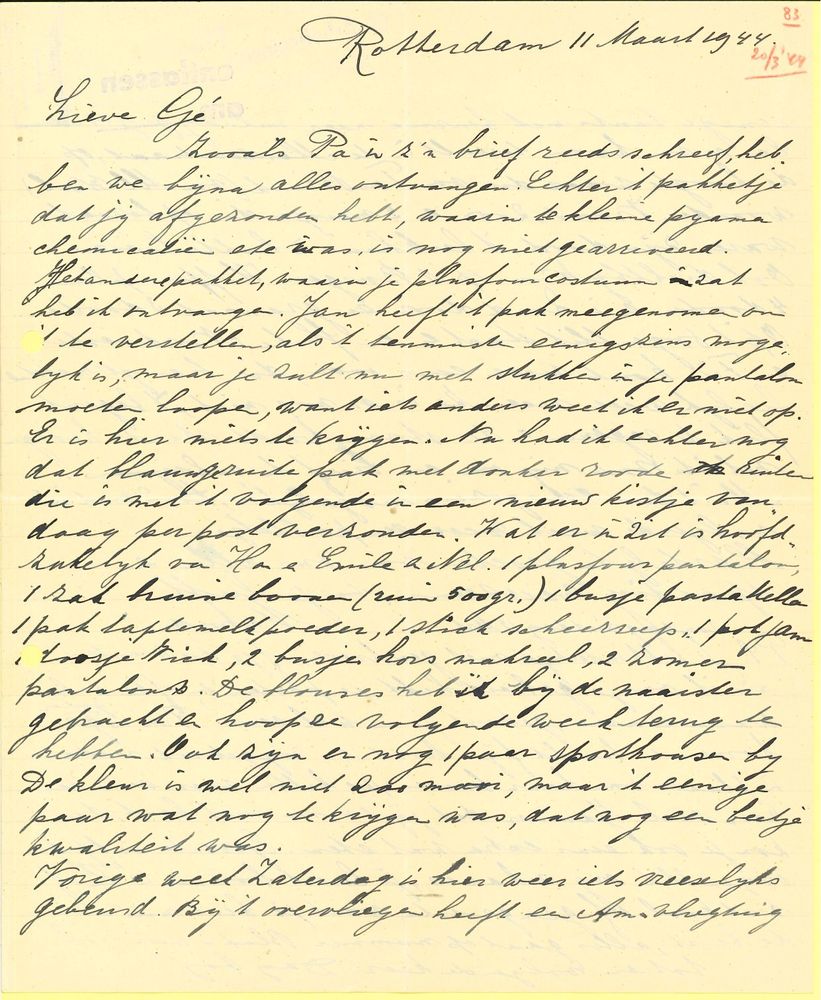 83
Rotterdam 11 Maart 1944.
20/3 '44
Lieve Gé
Zooals Pa in z'n brief reeds schreef, heb
ben we bijna alles ontvangen. Echter 't pakketje
dat jij afgezonden hebt, waarin te kleine pyama
chemicaliën etc was, is nog niet gearriveerd.
Het andere pakket, waarin je plusfourcostuum zat
heb ik ontvangen. Jan heeft 't pak meegenomen om
't te verstellen, als 't tenminste eenigszins moge
lijk is, maar je zult nu met stukken in je pantalon
moeten loopen, want iets anders weet ik er niet op.
Er is hier niets te krijgen. Nu had ik echter nog
dat blauwgeruite pak met donker roode ruiten
die is met 't volgende in een nieuw kistje van
daag per post verzonden. Wat er in zit is hoofd
zakelijk van Han en Emile & Nel. 1 plusfour pantalon,
1 zak bruine boonen (ruim 500 gr.) 1 busje pasta Kella
1 pak taptemelkpoeder, 1 stick scheerzeep, 1 pot jam
1 doosje Vick, 2 busjes hors makreel, 2 zomer
pantalons. De blouses heb ik bij de naaister
gebracht en hoop ze volgende week terug te
hebben. Ook zijn er nog 1 paar sportkousen bij
De kleur is wel niet zoo mooi, maar 't eenige
paar wat nog te krijgen was, dat nog een beetje
kwaliteit was.
Vorige week Zaterdag is hier weer iets vreeselijks
gebeurd. Bij 't overvliegen heeft een Am. vliegtuig